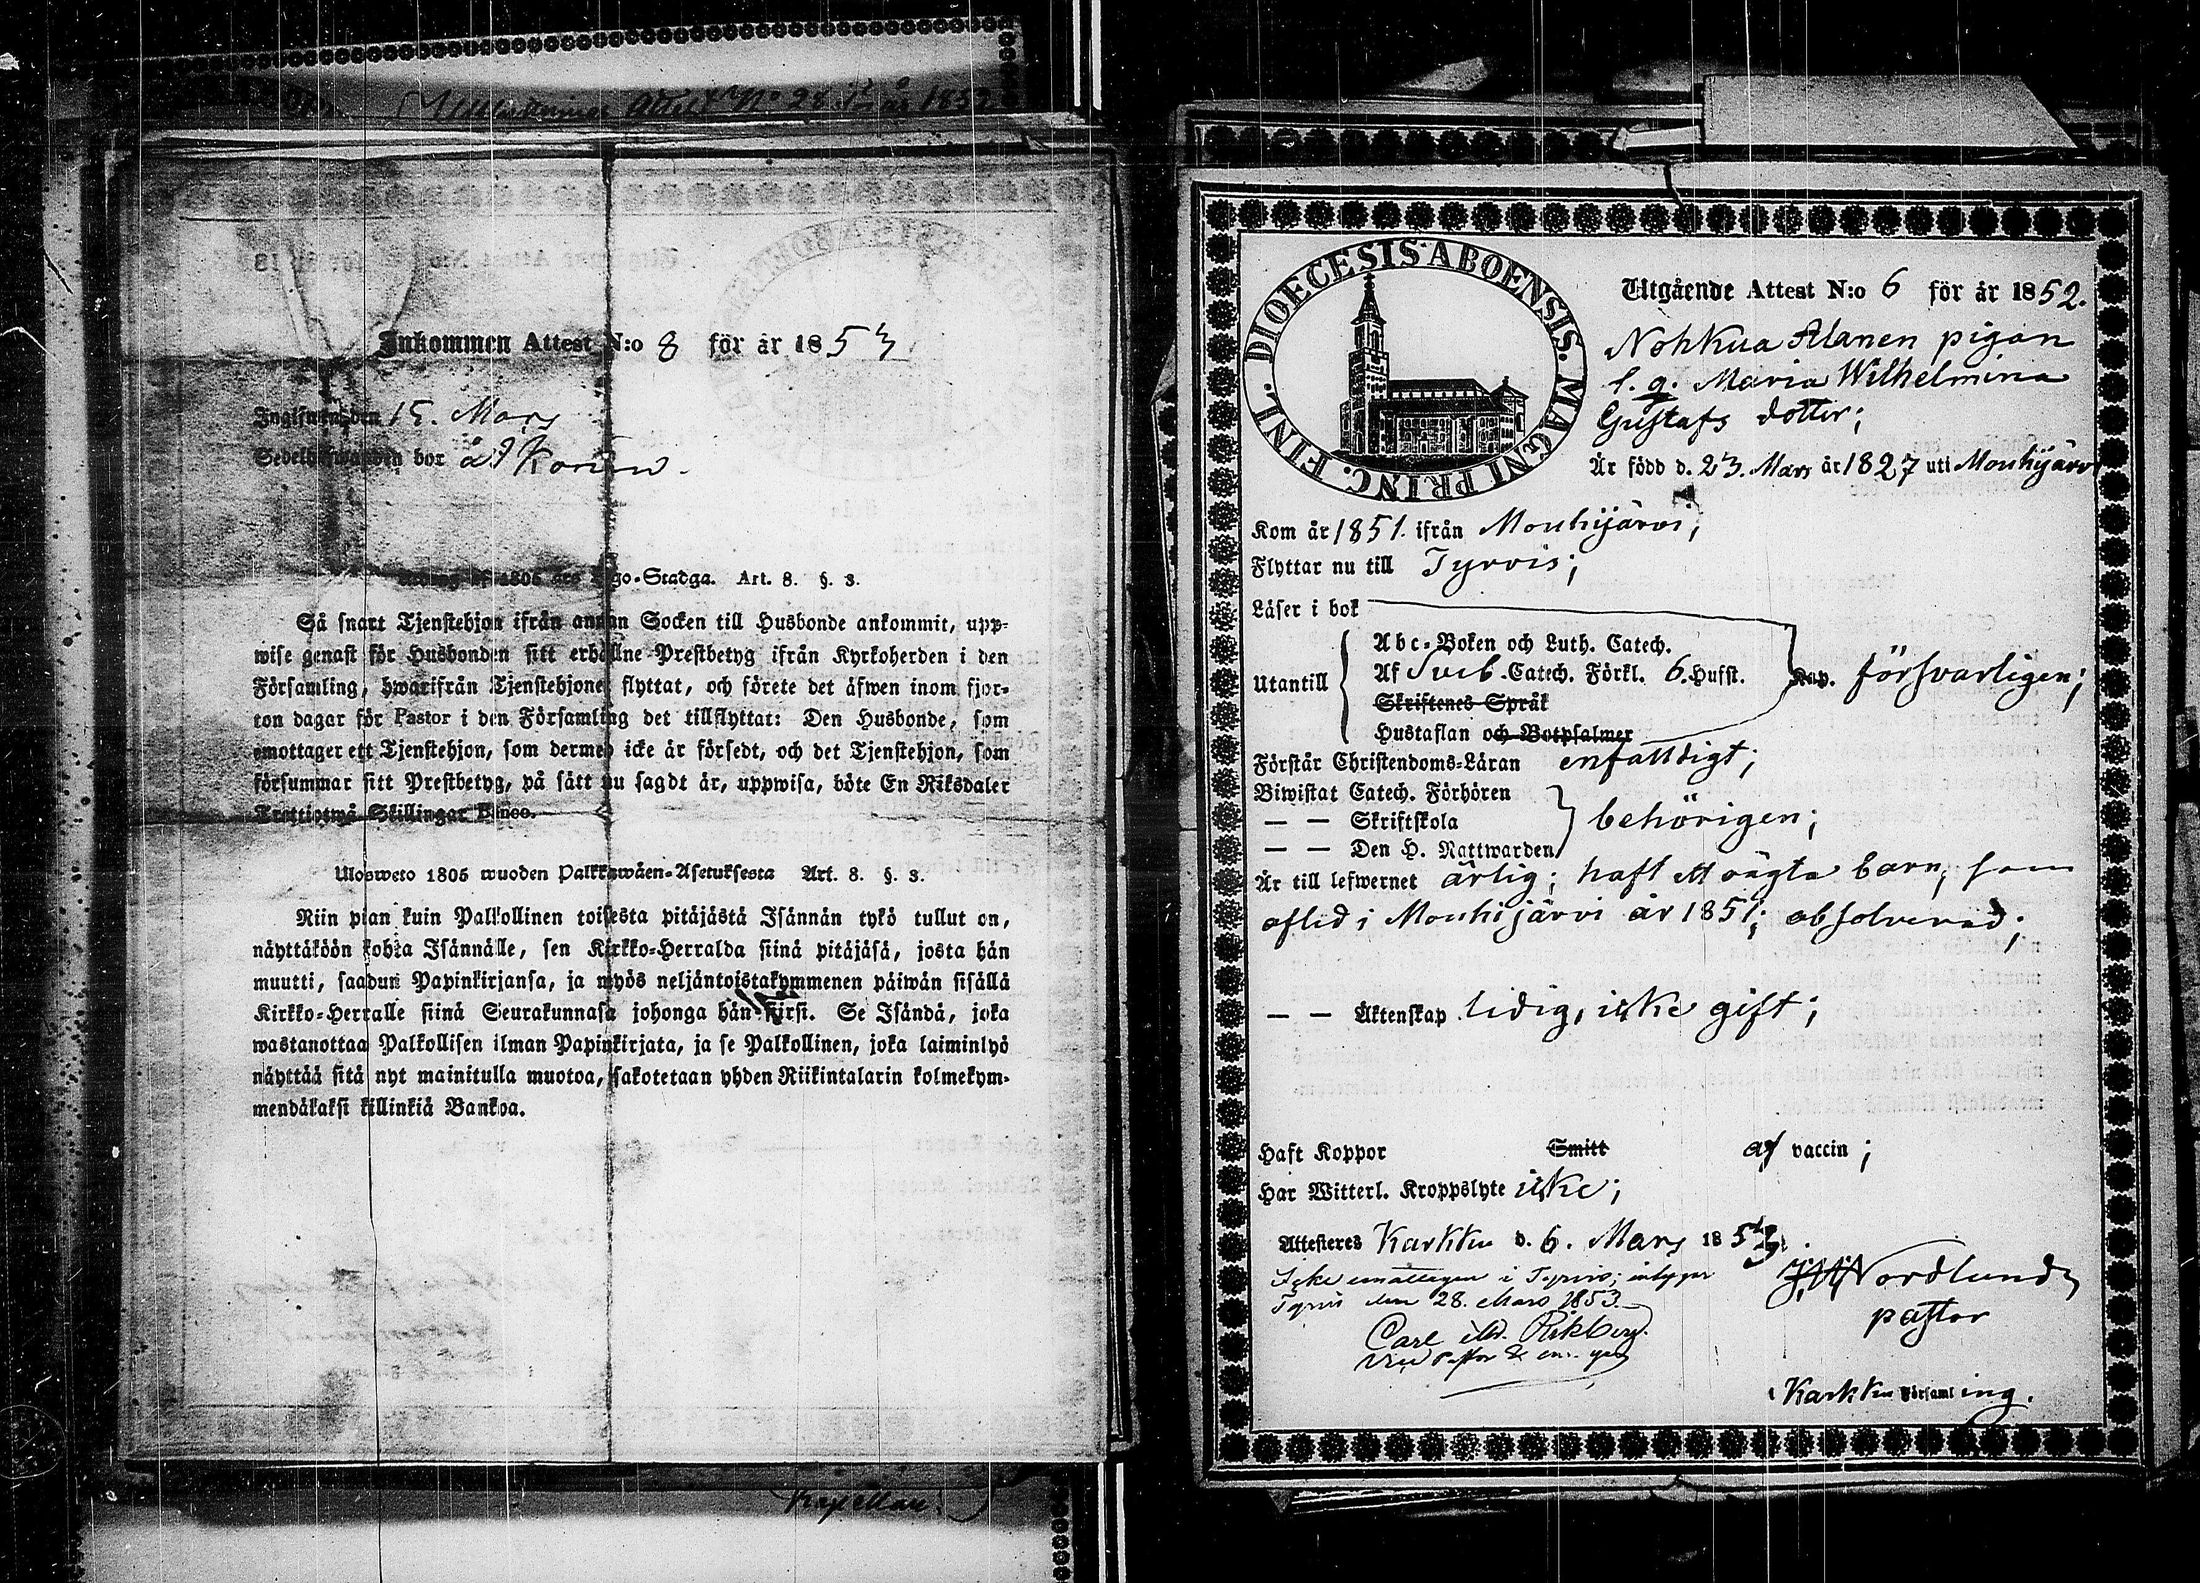 Attest No 28. för år 1852
Inkommen Attest N:o 8 för år 1853
den 15. Mars
bor å
af 1806 års Lego-Stadga. Art. 8. §. 3.
Så snart Tjenstehjon ifrån annan Socken till Husbonde ankommit, upp-
wise genast för Husbonden sitt erhållne Prestbetyg ifrån Kyrkoherden i den
Församling, hwarifrån Tjenstehjonet flyttat, och förete det äfwen inom fjor-
ton dagar för Pastor i den Församling det tillflyttat: Den Husbonde, som
emottager ett Tjenstehjon, som dermed icke är försedt, och det Tjenstehjon, som
försummar sitt Prestbetyg, på sätt nu sagdt är, uppwisa, böte En Riksdaler
Trettiotwå Skillingar Banco.
Ulosweto 1805 wuoden Palkkawäen-Asetuksesta Art. 8. §. 3.
Niin pian kuin Palkollinen toisesta pitäjästä Isännän tykö tullut on,
näyttäköön kohta Isännälle, sen Kirkko-Herralda siinä pitäjäsä, josta hän
muutti, saadun Papinkirjansa, ja myös neljäntoistakymmenen päiwän sisällä
Kirkko-Herralle siinä Seurakunnasa johonga hän siirsi. Se Isändä, joka
wastanottaa Palkollisen ilman Papinkirjata, ja se Palkollinen, joka laiminlyö
näyttää sitä nyt mainitulla muotoa, sakotetaan yhden Riikintalarin kolmekym-
mendäkaksi killinkiä Bankoa.
Kapellan
DIOECESIS ABOENSIS. MAGNI PRINC. FINL.
Utgående Attest N:o 6 för år 1852.
Nohkua Alanen pigan
l. q. Maria Wilhelmina
Gustafs dotter;
Är född d. 23. Mars år 1827 uti Mouhijärvi
Kom år 1851. ifrån Mouhijärvi;
Flyttar nu till Tyrvis;
Läser i bok
Abc-Boken och Luth. Catech.
Utantill Af Sveb. Catech. Förkl. 6. Hufst. Kap. försvarligen;
Skriftenes Språk
Hustaflan och Botpsalmer
Förstår Christendoms-Läran enfalldigt;
Biwistat Catech. Förhören
— — Skriftskola behörigen;
— — Den H. Nattwarden
Är till lefwernet ärlig; haft ett oägta barn, som
aflid i Mouhijärvi år 1851; absolverad;
— — Äktenskap ledig, icke gift;
Haft Koppor Smitt af vaccin;
Har Witterl. Kroppslyte icke;
Attesteres Karkku d. 6. Mars 1853.
Icke emottagen i Tyrvis; intygar
Tyrvis den 28. Mars 1853.
Nordlund
pastor
Carl
i Karkku Församling.